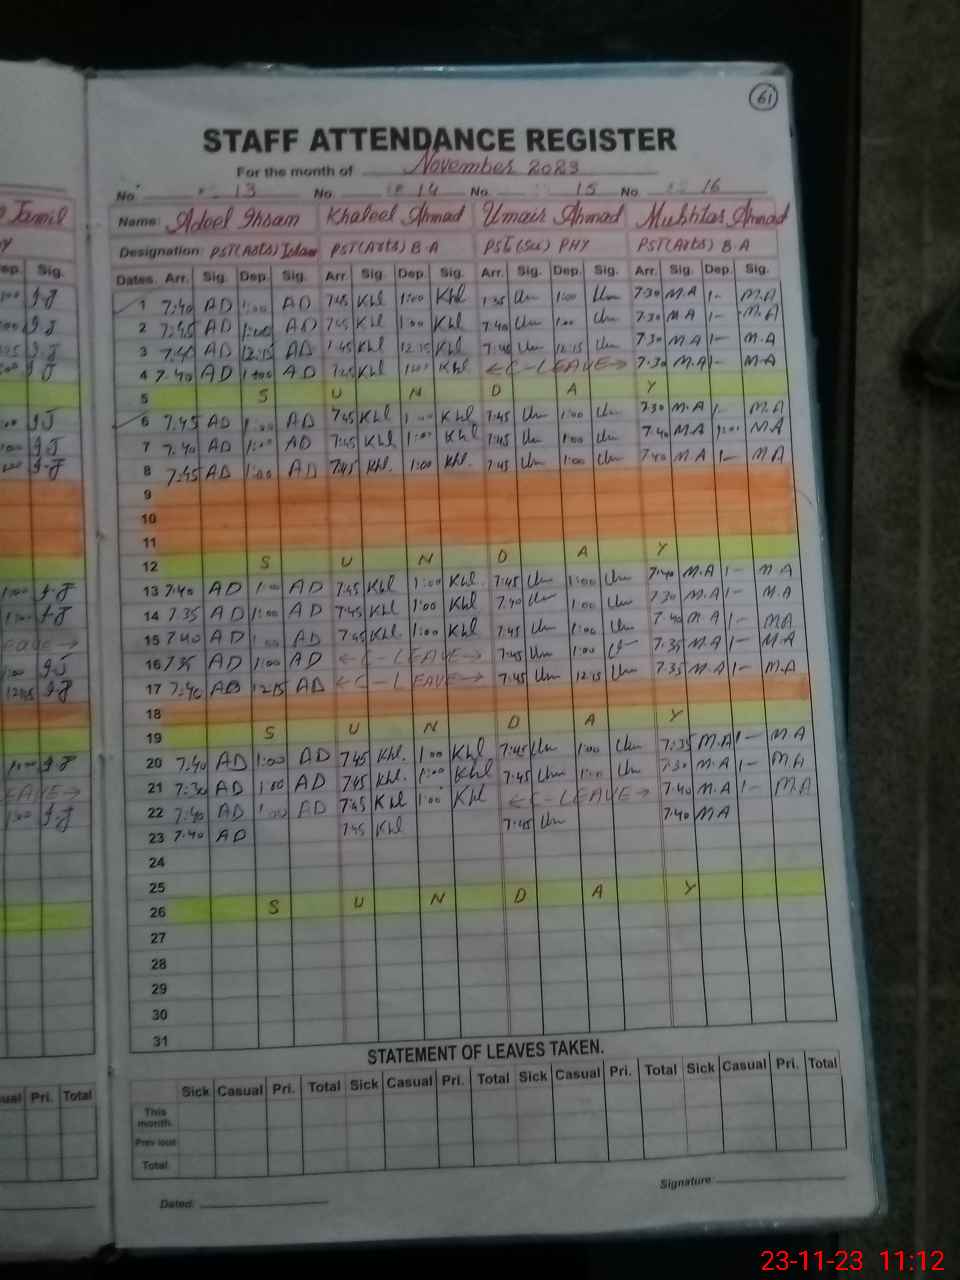 61
STAFF ATTENDANCE REGISTER
For the month of November 2023
No. 13 No. 14 No. 15 No. 16
Name: Adeel Ihsam Khaleel Ahmad Umair Ahmad Mushtaq Ahmad
Designation: PST(Arts) PST(Arts) B.A PST(Sci) PHY PST(Arts) B.A
Dates. Arr. Sig. Dep. Sig. Arr. Sig. Dep. Sig. Arr. Sig. Dep. Sig. Arr. Sig. Dep. Sig.
1 7:40 AD 1:00 AD 7:45 Khl 1:00 Khl 1:00 7:30 M.A 1- M.A
2 7:45 AD 1:00 AD 7:45 Khl 1:00 Khl 7:40 1:00 7:30 M.A 1- M.A
3 AD 12:15 AD Khl 12:15 Khl 12:15 7:30 M.A 1- M.A
4 7:40 AD 1:00 AD 7:45 Khl 1:00 Khl ← C-LEAVE → 7:30 M.A 1- M.A
5 S U N D A Y
6 7:45 AD 1:00 AD 7:45 Khl 1:00 Khl 7:45 1:00 7:30 M.A 1- M.A
7 7:40 AD 1:00 AD 7:45 Khl 1:00 Khl 7:45 1:00 7:40 M.A 1:00 M.A
8 7:45 AD 1:00 AD 7:45 Khl. 1:00 Khl. 7:45 1:00 7:40 M.A 1- M.A
9
10
11
12 S U N D A Y
13 7:40 AD 1:00 AD 7:45 Khl 1:00 Khl. 7:45 1:00 7:40 M.A 1- M.A
14 7:35 AD 1:00 AD 7:45 Khl 1:00 Khl 7:40 1:00 7:30 M.A 1- M.A
15 7:40 AD 1:00 AD 7:45 Khl. 1:00 Khl 7:45 1:00 7:40 M.A 1- M.A
16 7:35 AD 1:00 AD ← C-LEAVE → 7:45 1:00 7:35 M.A 1- M.A
17 7:40 AD 12:15 AD ← C-LEAVE → 7:45 12:15 7:35 M.A 1- M.A
18
19 S U N D A Y
20 7:40 AD 1:00 AD 7:45 Khl. 1:00 Khl 7:45 1:00 7:35 M.A 1- M.A
21 7:30 AD 1:00 AD 7:45 Khl. 1:00 Khl 7:45 1:00 7:30 M.A 1- M.A
22 7:40 AD 1:00 AD 7:45 Khl 1:00 Khl ← C-LEAVE → 7:40 M.A 1- M.A
23 7:40 AD 7:45 Khl 7:45 7:40 M.A
24
25
26 S U N D A Y
27
28
29
30
31
STATEMENT OF LEAVES TAKEN.
Sick Casual Pri. Total Sick Casual Pri. Total Sick Casual Pri. Total Sick Casual Pri. Total
This month.
Previous
Total
Dated: Signature:
23-11-23 11:12